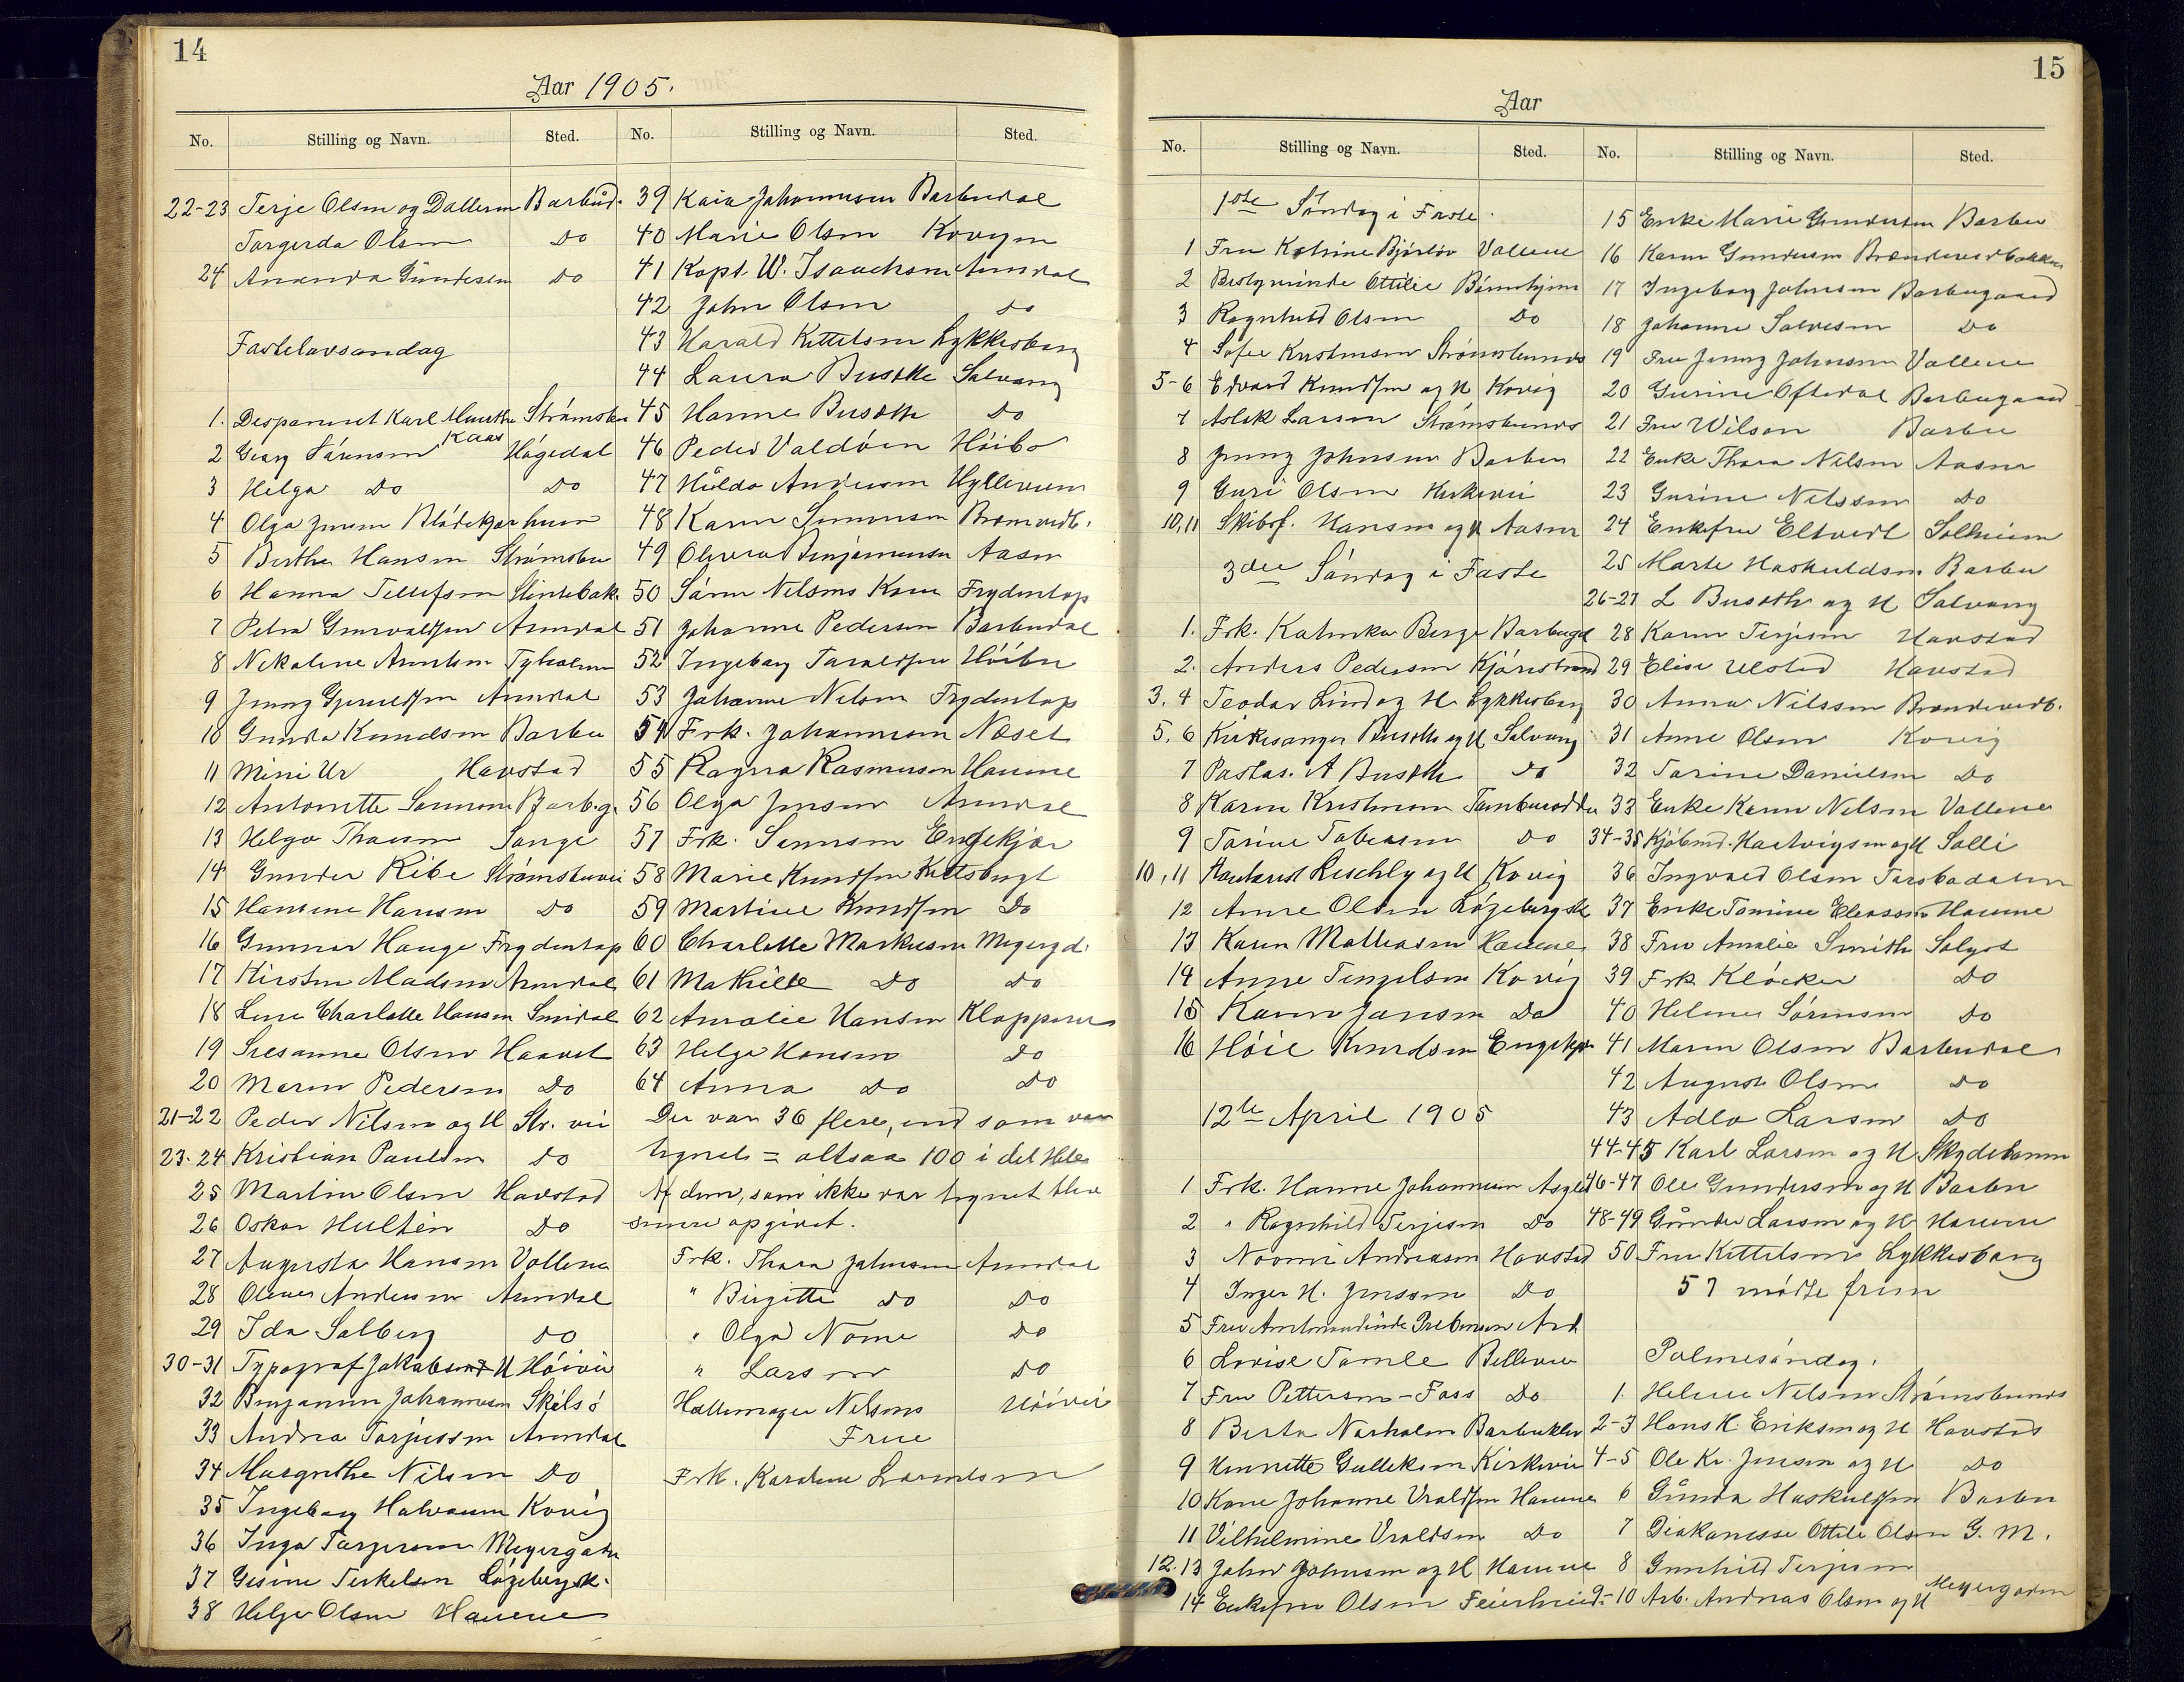 14
Aar 1905.
No. Stilling og Navn. Sted.
22-23 Terje Olsen og Datteren Barbud.
Torgerda Olsen Do
24 Amanda Gundersen Do
Fastelavsøndag
1. Disponent Karl Marthi Strømsbu
Kaas
2 Georg Sørensen Høgedal
3 Helga Do Do
4 Olga Jensen Blødekjær
5 Berthe Hansen Strømsbu
6 Hanna Tellefsen Slintebak.
7 Petra Gunvaldsen Arendal
8 Nikoline Arntsen Tyholmen
9 Jenny Gjeruldsen Arendal
10 Gunda Knudsen Barbu
11 Mini Ur Havstad
12 Antonette Sørensen Barb.g.
13 Helga Thorsen Songe
14 Gunder Ribe Strømsbuvei
15 Hansine Hansen Do
16 Gunnar Hauge Frydentop
17 Kirsten Madsen Arendal
18 Lene Charlotte Hansen Smidal
19 Susanne Olsen Haavet
20 Maren Pedersen Do
21-22 Peder Nilsen og H Str. vei
23-24 Kristian Paulsen Do
25 Martin Olsen Havstad
26 Oskar Hultén Do
27 Augusta Hansen Vollene
28 Olene Andersen Arendal
29 Ida Solberg Do
30-31 Typograf Jakobsen H Höivei
32 Benjamin Johannesen Skilsö
33 Andrea Torjussen Arendal
34 Margrethe Nilsen Do
35 Ingeborg Halvorsen Kovig
36 Inga Torgersen Meyergaten
37 Gesine Terkelsen Lögebergsk.
38 Helge Olsen Havene
No. Stilling og Navn. Sted.
39 Kaia Johannesen Barbudal
40 Marie Olsen Kovigen
41 Kapt. W. Isaachsen Arendal
42 John Olsen Do
43 Harald Kittelsen Lykkesborg
44 Laura Busoth Solvang
45 Hanne Busoth Do
46 Peder Valdöen Höibo
47 Hulda Andersen Hylleveien
48 Karen Simonsen Brømvedb.
49 Olevia Benjaminsen Aasen
50 Søren Nilsens Kone Frydentop
51 Johanne Pedersen Barbudal
52 Ingeborg Taraldsen Höibu
53 Johanne Nilsen Frydentop
54 Frk. Johannesen Næset
55 Ragna Rasmussen Havene
56 Olga Jensen Arendal
57 Frk. Sennesen Engekjær
58 Marie Knudsen Kittsbugt
59 Martine Knudsen Do
60 Charlotte Markusen Meyergd.
61 Mathilde Do Do
62 Amalie Hansen Kloppene
63 Helga Hansen Do
64 Anna Do Do
Der var 36 flere, end som var
tegnet = altsaa 100 i det Hele
Af dem, som ikke var tegnet blev
senere opgivet.
Frk. Thora Johnsen Arendal
" Birgitte Do Do
" Olga Nome Do
" Larsen Do
Hattemager Nilsens Höivei
Frue
Frk. Karoline Lorentsen
15
Aar
No. Stilling og Navn. Sted.
1ste Søndag i Faste.
1 Fru Katrine Bjorløv Vollene
2 Bestyrerinde Ottilie Børnehjem
3 Ragnhild Olsen Do
4 Sofie Kristensen Strømsbunds
5-6 Edvard Knudsen og H Kovig
7 Aslak Larsen Strømsbunds
8 Jenny Johnsen Barbu
9 Guri Olsen Kirkevei
10,11 Skibsf. Hansen og H Aasen
3die Søndag i Faste
1. Frk. Katinka Berge Barbugd
2. Anders Pedersen Kjørestrand
3,4 Teodor Lind og H. Lykkesborg
5,6 Kirkesanger Busoth og H Solvang
7 Postas. A Busoth Do
8 Karen Kristensen Tambusodden
9 Torine Tobiasen Do
10,11 Kontorist Leschly og H Kovig
12 Anne Olsen Løgebergsk
13 Karen Mathiasen Havene
14 Anne Tengelsen Kovig
15 Karen Jansen Do
16 Høie Knudsen Engekjær
12te April 1905
1 Frk. Hanne Johannesen Asgld
2 " Ragnhild Terjesen Do
3 Noomi Andreasen Havstad
4 Inger H. Jensen Do
5 Fru Amtmandinde Prebensen Ard
6 Lovise Tomle Bellevue
7 Fru Pettersen-Foss Do
8 Berta Narholm Barbuklev
9 Henriette Gulleksen Kirkevei
10 Kone Johanne Vraldsen Havene
11 Vilhelmine Vraldsen Do
12.13 John Johnsen og H Havene
14 Enkefru Olsen Feierheid
No. Stilling og Navn. Sted.
15 Enke Marie Gundersen Barbu
16 Karen Gundersen Brændevedbakken
17 Ingeborg Johnsen Barbugaard
18 Johanne Salvesen Do
19 Fru Jenny Johnsen Vollene
20 Gurine Oftedal Barbugaard
21 Fru Wilson Barbu
22 Enke Thora Nilsen Aasen
23 Gurine Nilssen Do
24 Enkefru Eltvedt Solheim
25 Marte Haskuldsen Barbu
26-27 L Busoth og H Solvang
28 Karen Terjesen Havstad
29 Elise Ulstad Havstad
30 Anna Nilssen Brændevedb.
31 Anne Olsen Kovig
32 Torine Danielsen Do
33 Enke Karen Nilsen Vollene
34-35 Kjöbmd. Hartvigsen og H Solli
36 Ingvald Olsen Torsbudalen
37 Enke Tomine Eleasen Havene
38 Fru Amalie Smith Solyst
39 Frk Klöcker Do
40 Helene Sörensen Do
41 Maren Olsen Barbudal
42 August Olsen Do
43 Adla Larsen Do
44-45 Karl Larsen og H Skydebanen
46-47 Ole Gundersen og H Barbu
48-49 Gunder Larsen og H Havene
50 Fru Kittelsen Lykkesborg
57 mödte frem
Palmesöndag.
1. Helene Nilsen Strømsbunds
2-3 Hans H. Eriksen og H Havstad
4-5 Ole Kr. Jensen og H Do
6 Gunda Haskuldsen Barbu
7 Diakonesse Ottilie Olsen G. M.
8 Gunhild Terjesen
9-10 Arb. Andreas Olsen og H Meyergaden